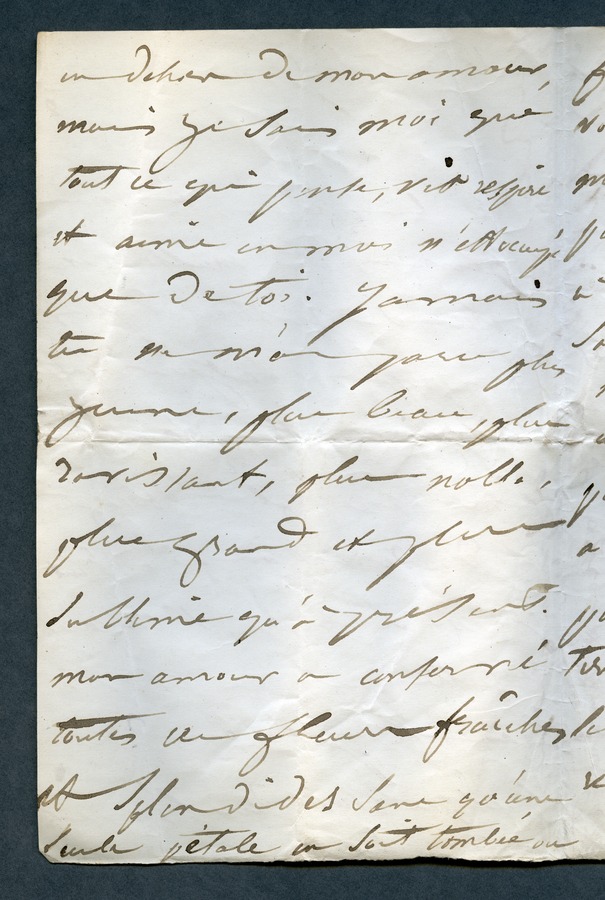 en dehors de mon amour,
mais je sais moi que
tout ce qui pense, vit respire
et aime en moi n'est occupé
que de toi. Jamais
tu ne m'as paru plus
jeune, plus beau, plus
ravissant, plus noble,
plus grand et plus
sublime qu'à présent.
mon amour a conservé
toutes ses fleurs fraîches
et splendides sans qu'une
seule pétale en soit tombée ou